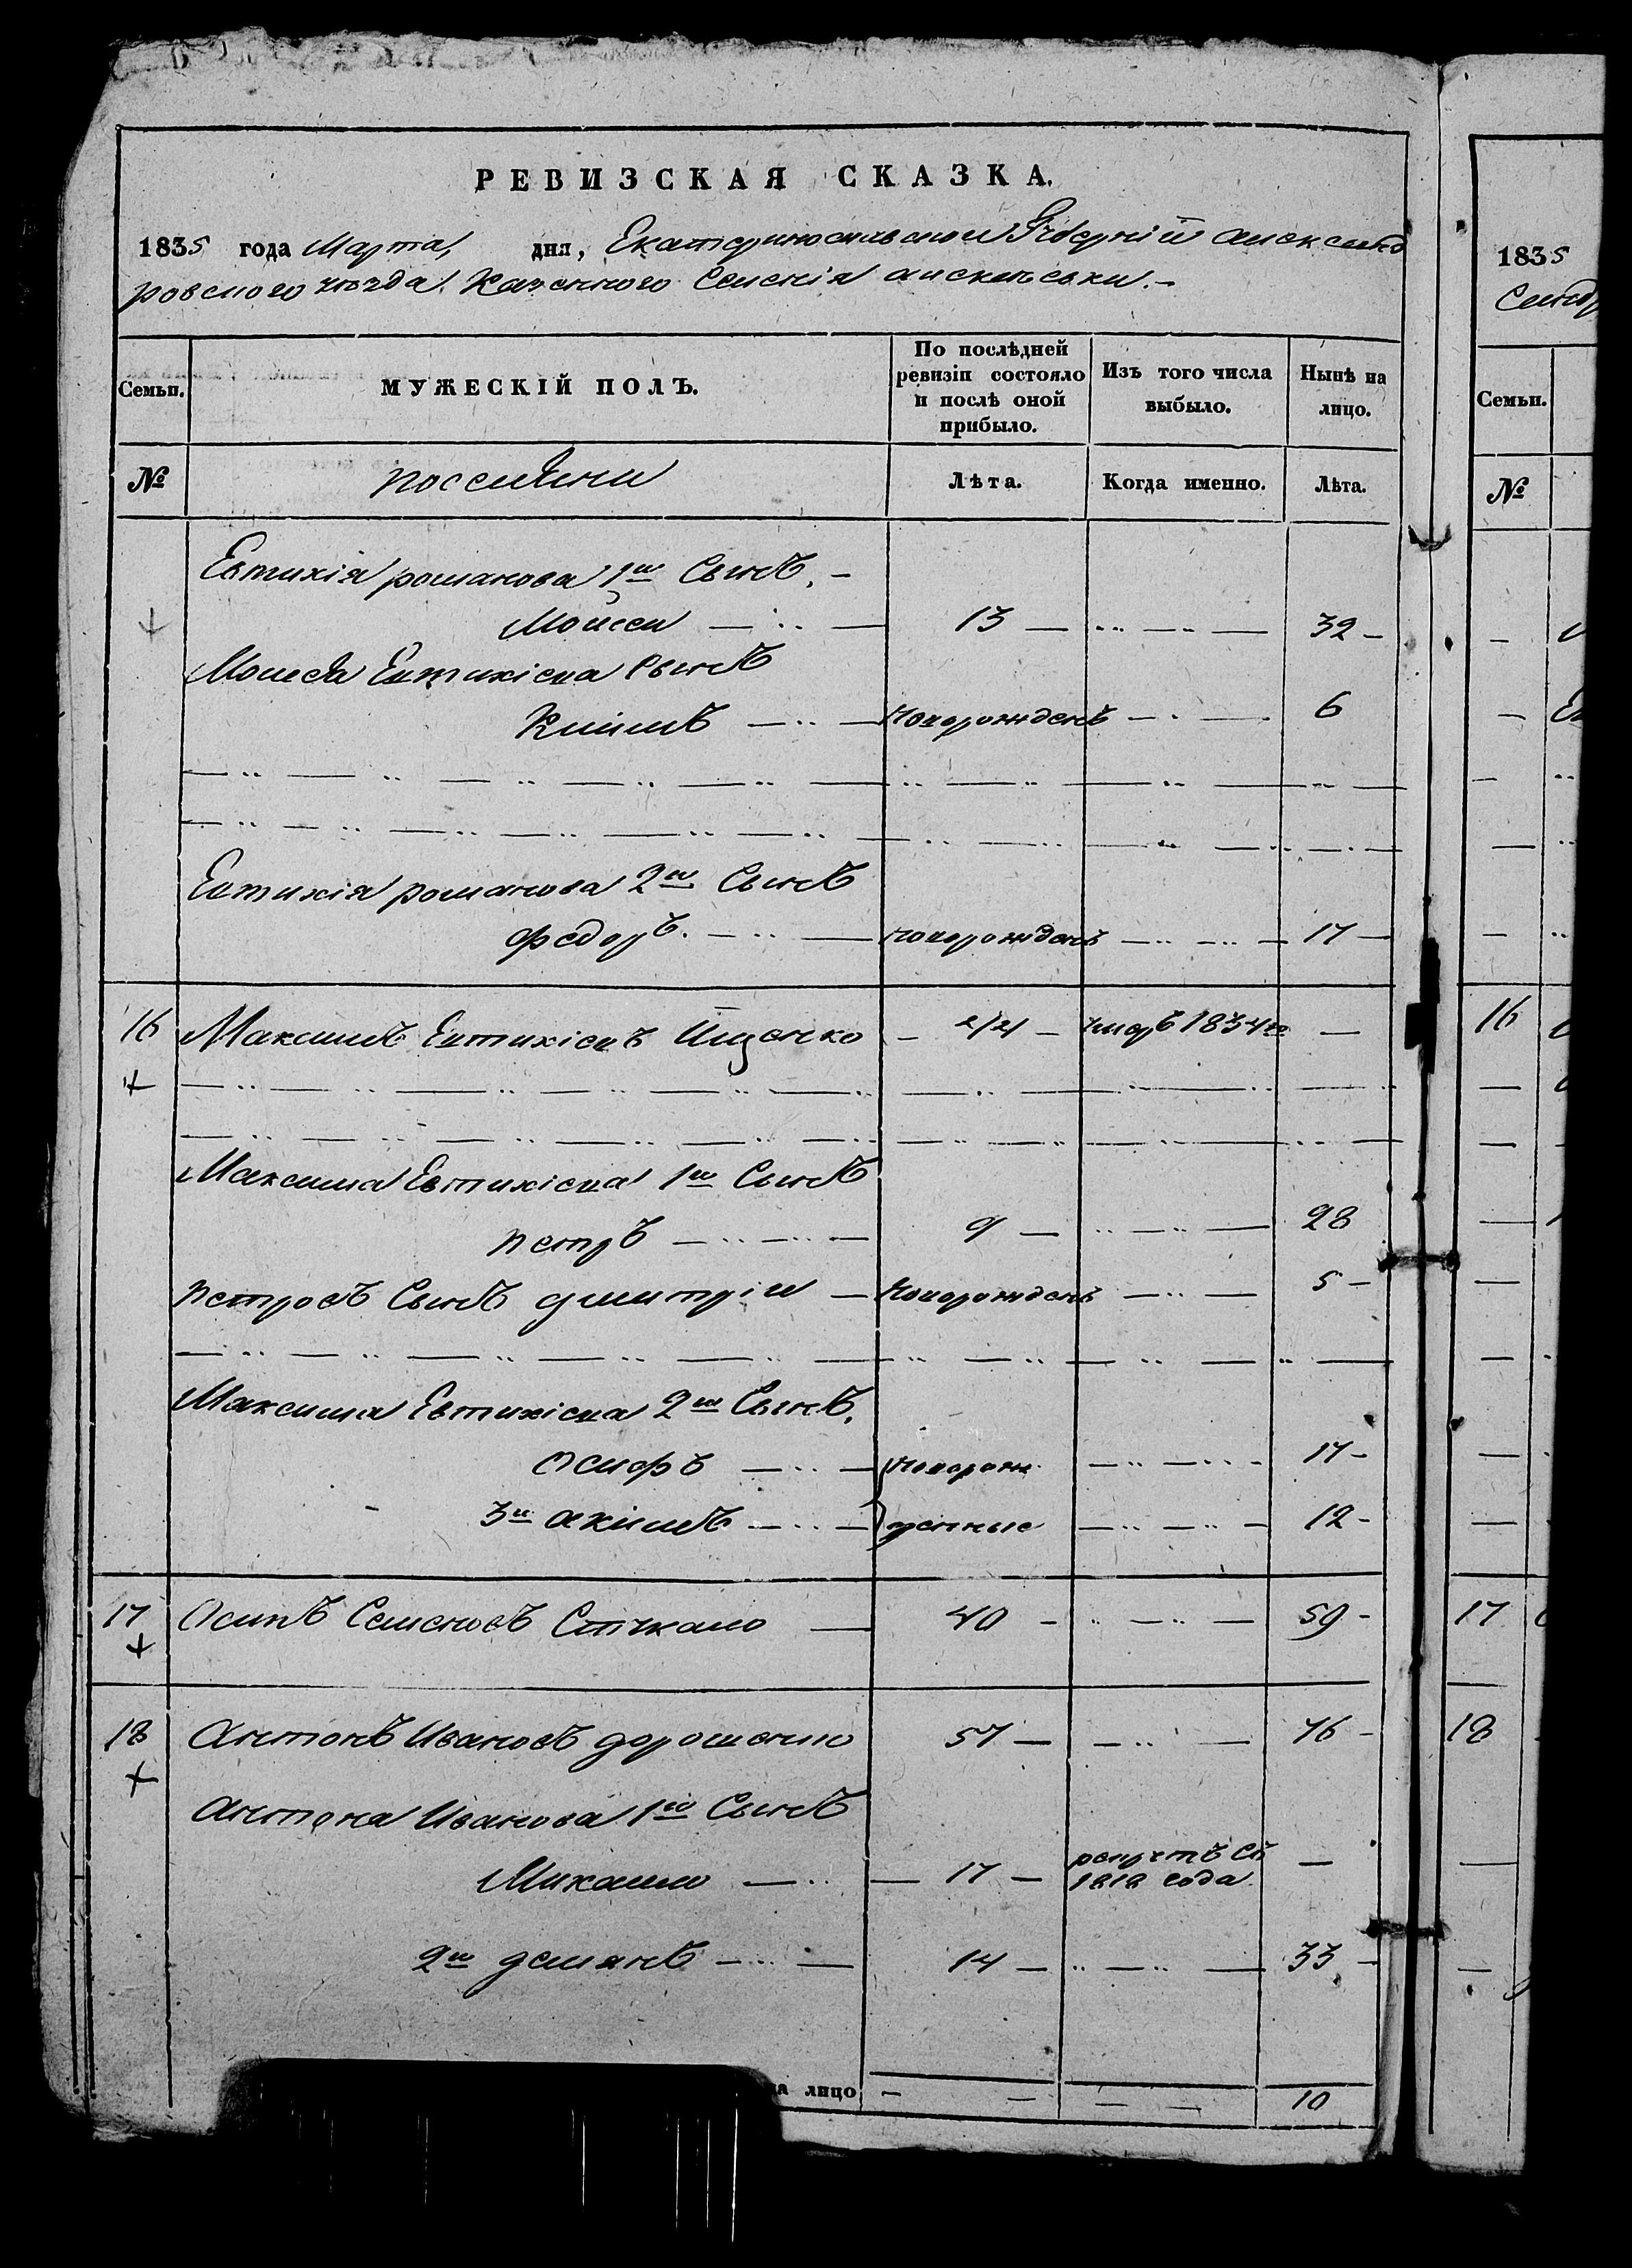 РЕВИЗСКАЯ СКАЗКА.
1835 года Марта, дня, Екатеринославской Губерніи Александ
ровского уезда. Казенного Селенія
Семьи. МУЖЕСКІЙ ПОЛЪ. По послѣдней ревизіи состояло и послѣ оной прибыло. Изъ того числа выбыло. Нынѣ на лицо.
№ поселяни Лѣта. Когда именно. Лѣта.
Евтихія романова 1й Сынъ. —
Мойсей — 13 — 32 —
Моисея Евтихіева Сынъ
Климъ — новорожденъ — 6
Евтихія романова 2й Сынъ
Федоръ. — новорожденъ — 17 —
16 Максимъ Евтихіевъ Ищенко — 44 — умеръ 1834го —
Максима Евтихіева 1й Сынъ
петръ — 9 — 28
петровъ Сынъ дмитрій — Новорожденъ — 5 —
Максима Евтихіева 2й Сынъ.
Осифъ — новорож 17 —
3й акимъ — денные — 12 —
17 Осипъ Семеновъ 40 — 59 —
18 Антонъ Ивановъ дорошенко 57 — 76 —
Антона Иванова 1й Сынъ
Михайло — 17 — рекрутъ Съ
1818 года —
2й демянъ — 14 — 33 —
на лицо — 10
1835
Семьи.
№
16
17
18